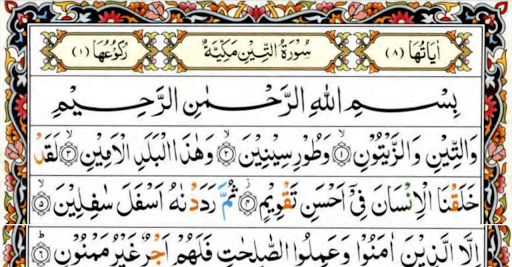 اٰیَاتُهَا (۸) سُوْرَةُ التِّیْنِ مَكِّیَّةٌ رُكُوْعُهَا (۱)
بِسْمِ اللّٰهِ الرَّحْمٰنِ الرَّحِیْمِ
وَالتِّیْنِ وَالزَّیْتُوْنِ ۙ﴿۱﴾ وَطُوْرِ سِیْنِیْنَ ۙ﴿۲﴾ وَهٰذَا الْبَلَدِ الْاَمِیْنِ ۙ﴿۳﴾ لَقَدْ
خَلَقْنَا الْاِنْسَانَ فِیْۤ اَحْسَنِ تَقْوِیْمٍ ؗ﴿۴﴾ ثُمَّ رَدَدْنٰهُ اَسْفَلَ سٰفِلِیْنَ ۙ﴿۵﴾
اِلَّا الَّذِیْنَ اٰمَنُوْا وَعَمِلُوا الصّٰلِحٰتِ فَلَهُمْ اَجْرٌ غَیْرُ مَمْنُوْنٍ ؕ﴿۶﴾